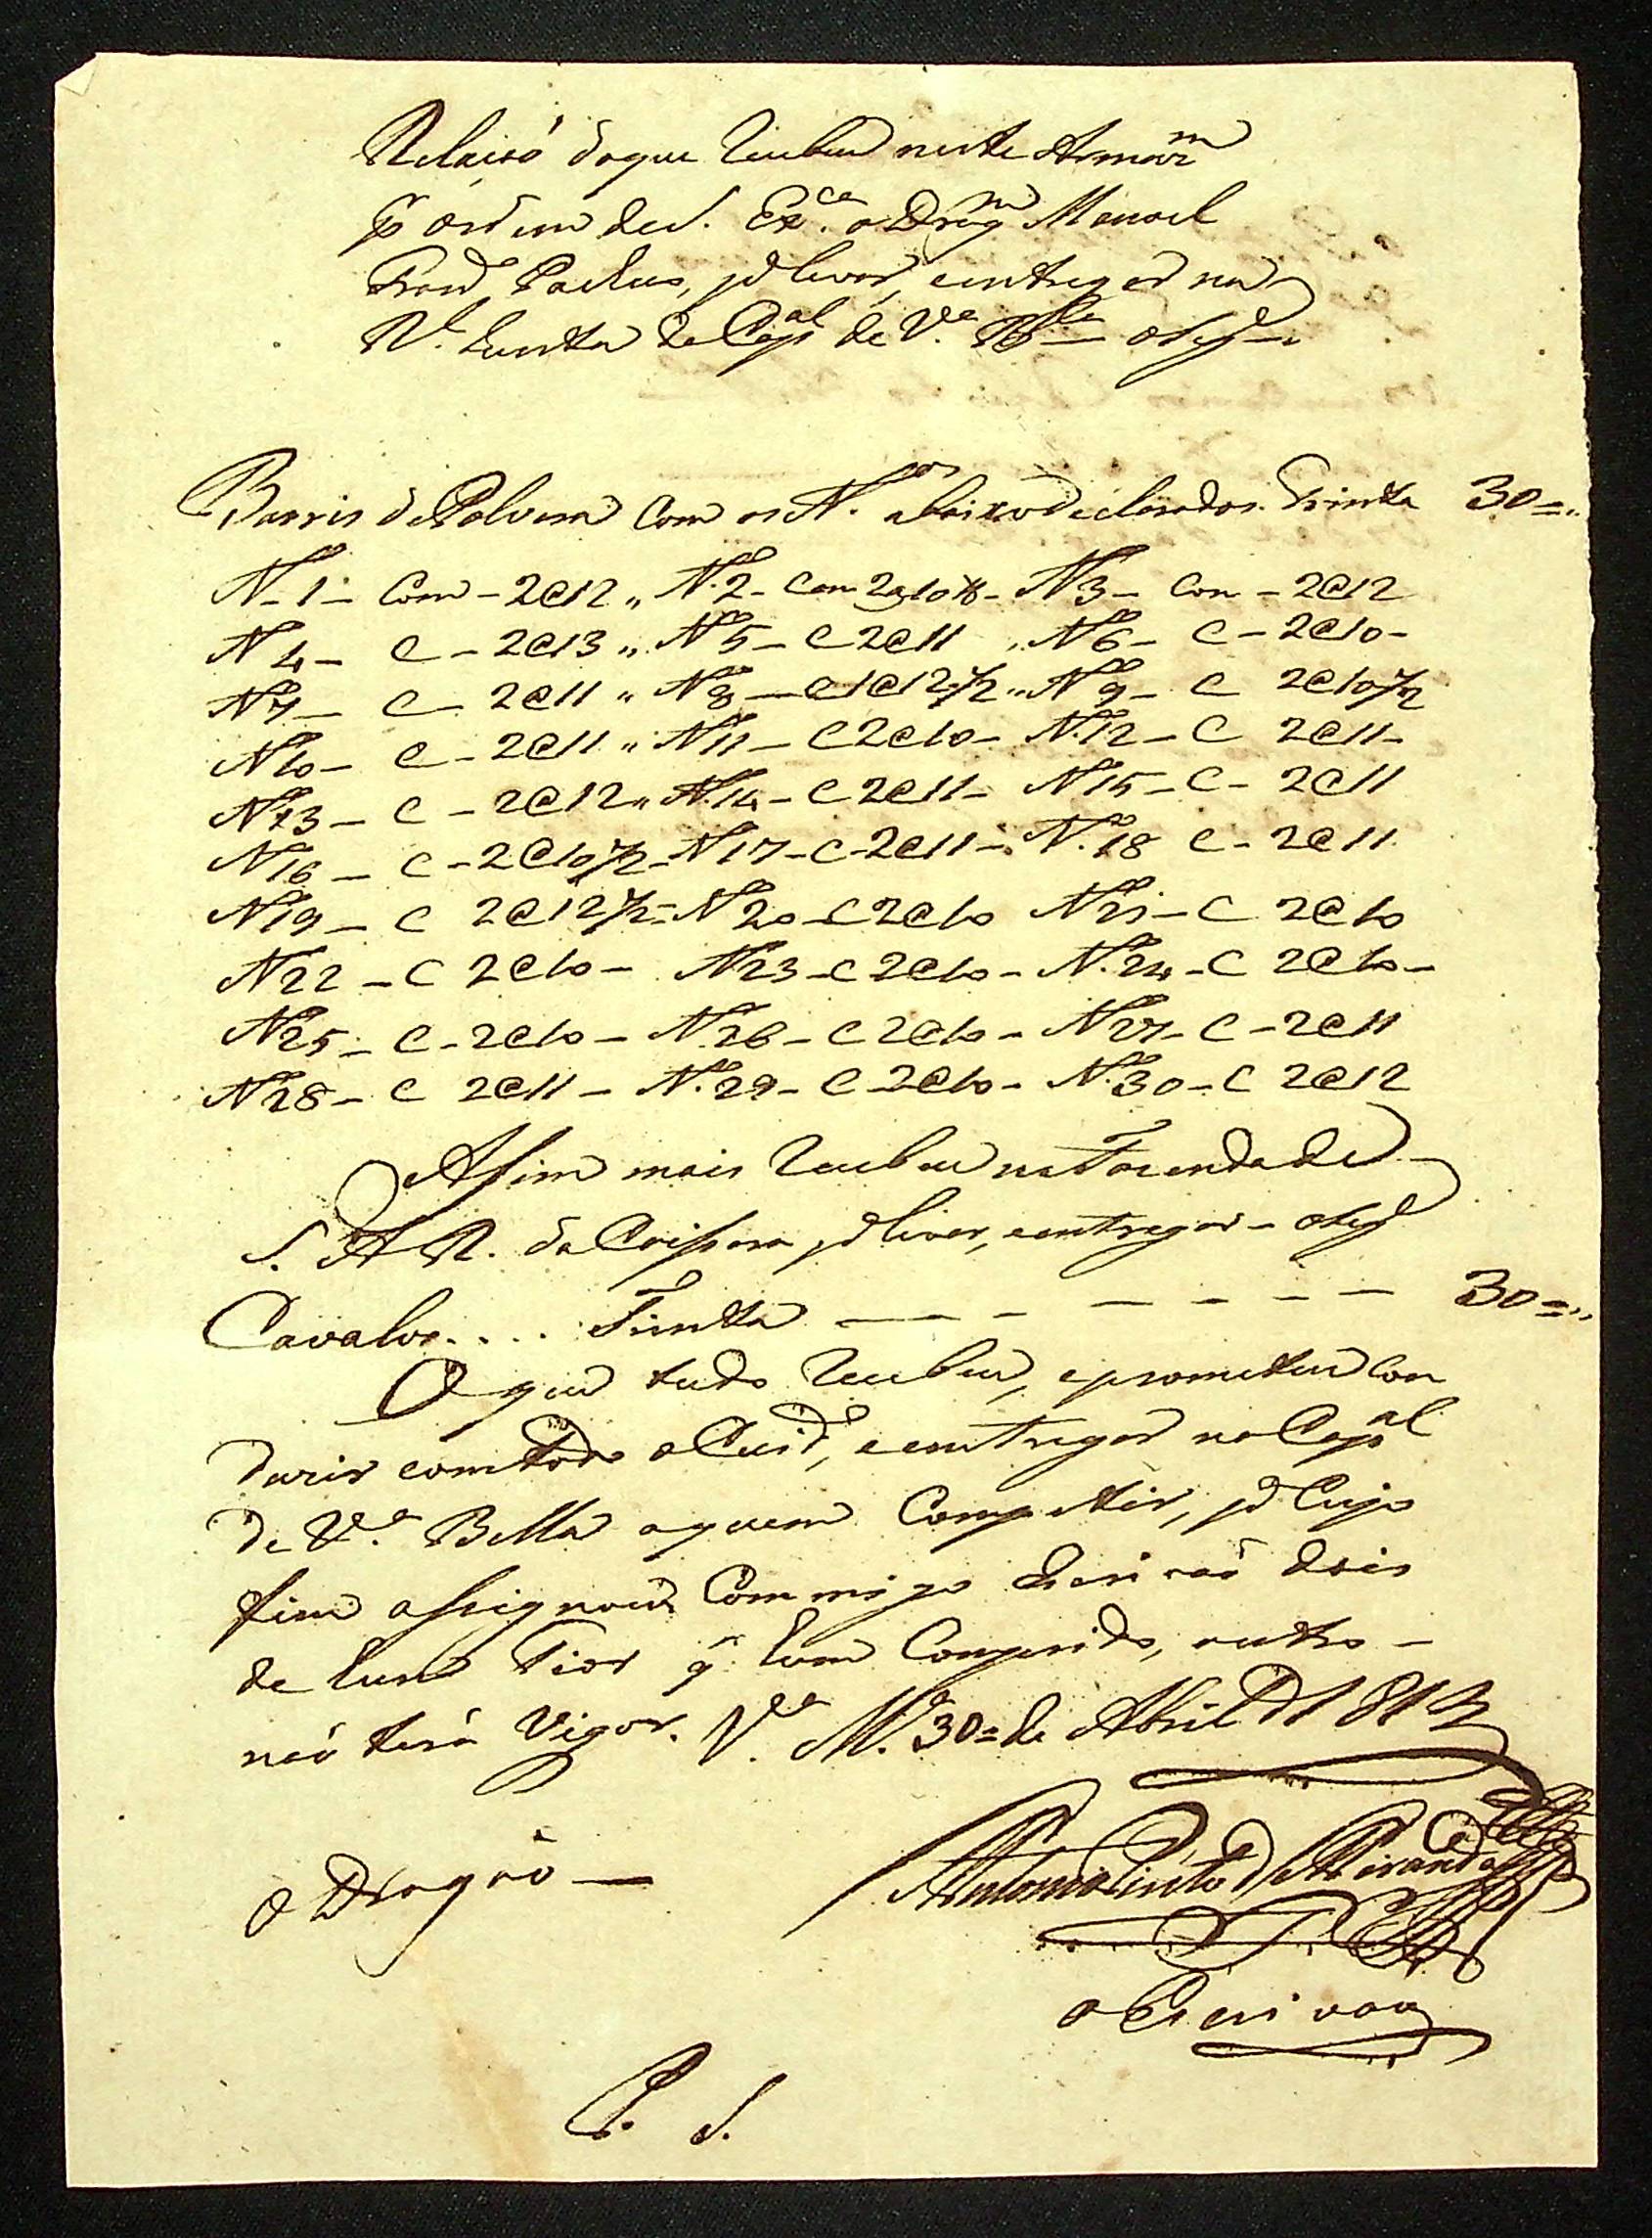 Relaisó doque Recebeu neste Armazm
Pr ordem de S. Exca. o Dragm Manoel
pa levar, eentregar na
Rl. Junta da Capal de Va. Bla o Segte
Barris de Polvora Com os Nos. abaixo declarados. Trinta 30=,,
No 1- Com - 2@12 ,, No.2- Com 2@10 lb - No3- Con - 2@12
No4- C - 2@13 ,, No5- C 2@11 ,, No6- C - 2@10-
No7- C - 2@11 ,, No8 - C 1@12 1/2 ,, No9- C 2@10 1/2
No10- C - 2@11 ,, No11- C 2@10- No.12- C 2@11-
No13- C - 2@12 ,, No.14- C 2@11- No15- C - 2@11
No16- C - 2@10 1/2 - No17- C - 2@11 - No.18 C - 2@11
No19- C 2@12 1/2 - No20- C 2@10 No21- C 2@10
No22- C 2@10- No23- C 2@10- No.24- C 2@10-
No25- C - 2@10- No26- C 2@10- No27- C - 2@11
No28- C 2@11- No.29- C - 2@10- No.30- C 2@12
Asim mais Recebeu na Fazenda de
S. A R. da Caissara pa levar, eentregar - o Segte
Cavalos.... Trinta - - - - - - - 30=,,
O que tudo Recebeu, eprometeu Con
duzir comtodo o Cuidº, eentregar na Capal
de Va. Bella aquem Competir, pa Cujo
fim assignou Commigo Escrivaõ dois
de hum Tior q. hum Comprido, outro -
naó terá Vigor. Va. Ma. 30= de Abril D1813
o Dragaõ -
Antonio Pinto d Miranda
o Escrivaõ
P. S.